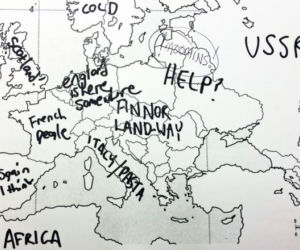 COLD
USSR
Scotland
HELP?
england
is here
somewhere
French
people
ANNOR
LAND-WAY
ITALY/PASTA
Spain
I think
AFRICA